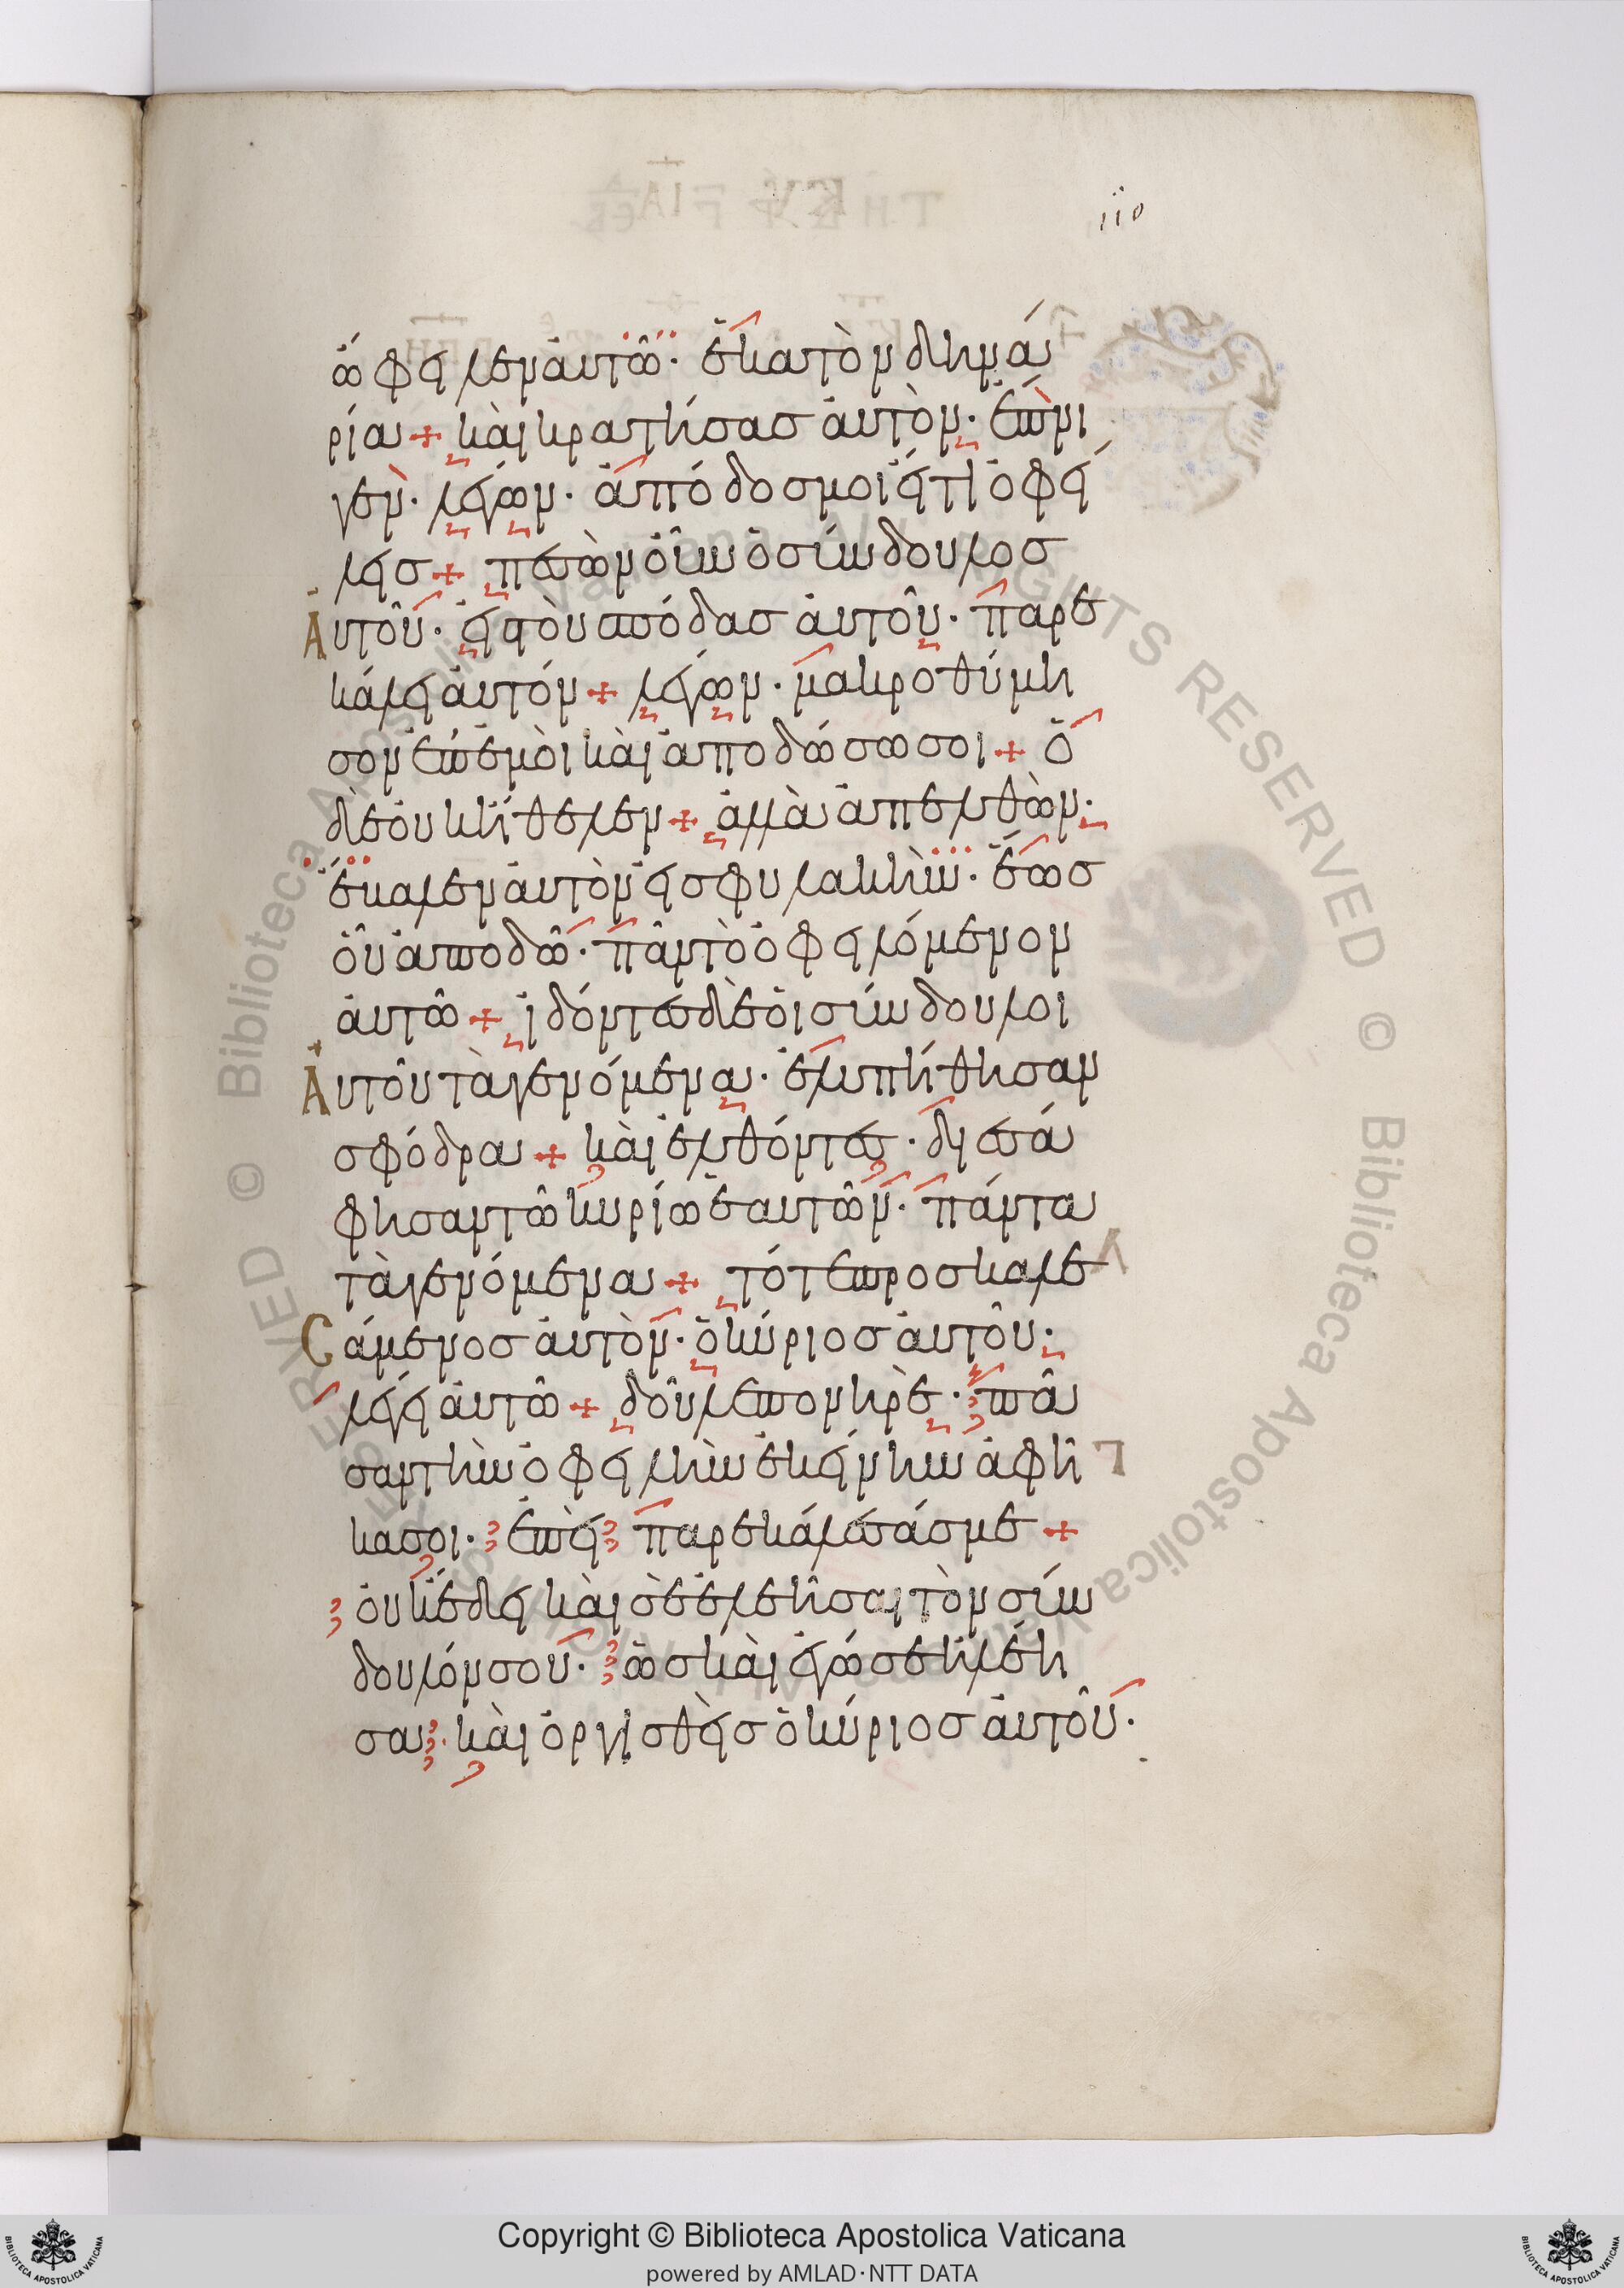 110
ὤφειλεν αὐτῶ· ἑκατὸν δηνά
ρια + καὶ κρατήσας αὐτὸν· ἔπνι
γεν· λέγων· ἀπόδος μοι εἴ τι ὀφεί
λεις + πεσὼν οὖν ὁ σύνδουλος
Αὐτοῦ· εἰς τοὺς πόδας αὐτοῦ· παρε
κάλει αὐτόν + λέγων· μακροθύμη
σον ἐπ' ἐμοὶ καὶ ἀποδώσω σοι + ὁ
δὲ οὐκ ἤθελεν + ἀλλὰ ἀπελθὼν·
ἔβαλεν αὐτὸν εἰς φυλακὴν· ἕως
οὗ ἀποδῶ· πᾶν τὸ ὀφειλόμενον
αὐτῶ + ἰδόντες δὲ οἱ σύνδουλοι
Αὐτοῦ τὰ γενόμενα· ἐλυπήθησαν
σφόδρα + καὶ ἐλθόντες· διεσά
φησαν τῶ κυρίω ἑαυτῶν· πάντα
τὰ γενόμενα + τότε προσκαλε
Σάμενος αὐτὸν· ὁ κύριος αὐτοῦ·
λέγει αὐτῶ + δοῦλε πονηρὲ· πᾶ
σαν τὴν ὀφειλὴν ἐκείνην ἀφῆ
κα σοι· ἐπεὶ παρεκάλεσάς με +
οὐκ ἔδει καὶ σὲ ἐλεῆσαι τὸν σύν
δουλόν σου· ὡς καὶ ἐγώ σε ἠλέη
σα· καὶ ὀργισθεὶς ὁ κύριος αὐτοῦ·
Copyright © Biblioteca Apostolica Vaticana
powered by AMLAD·NTT DATA